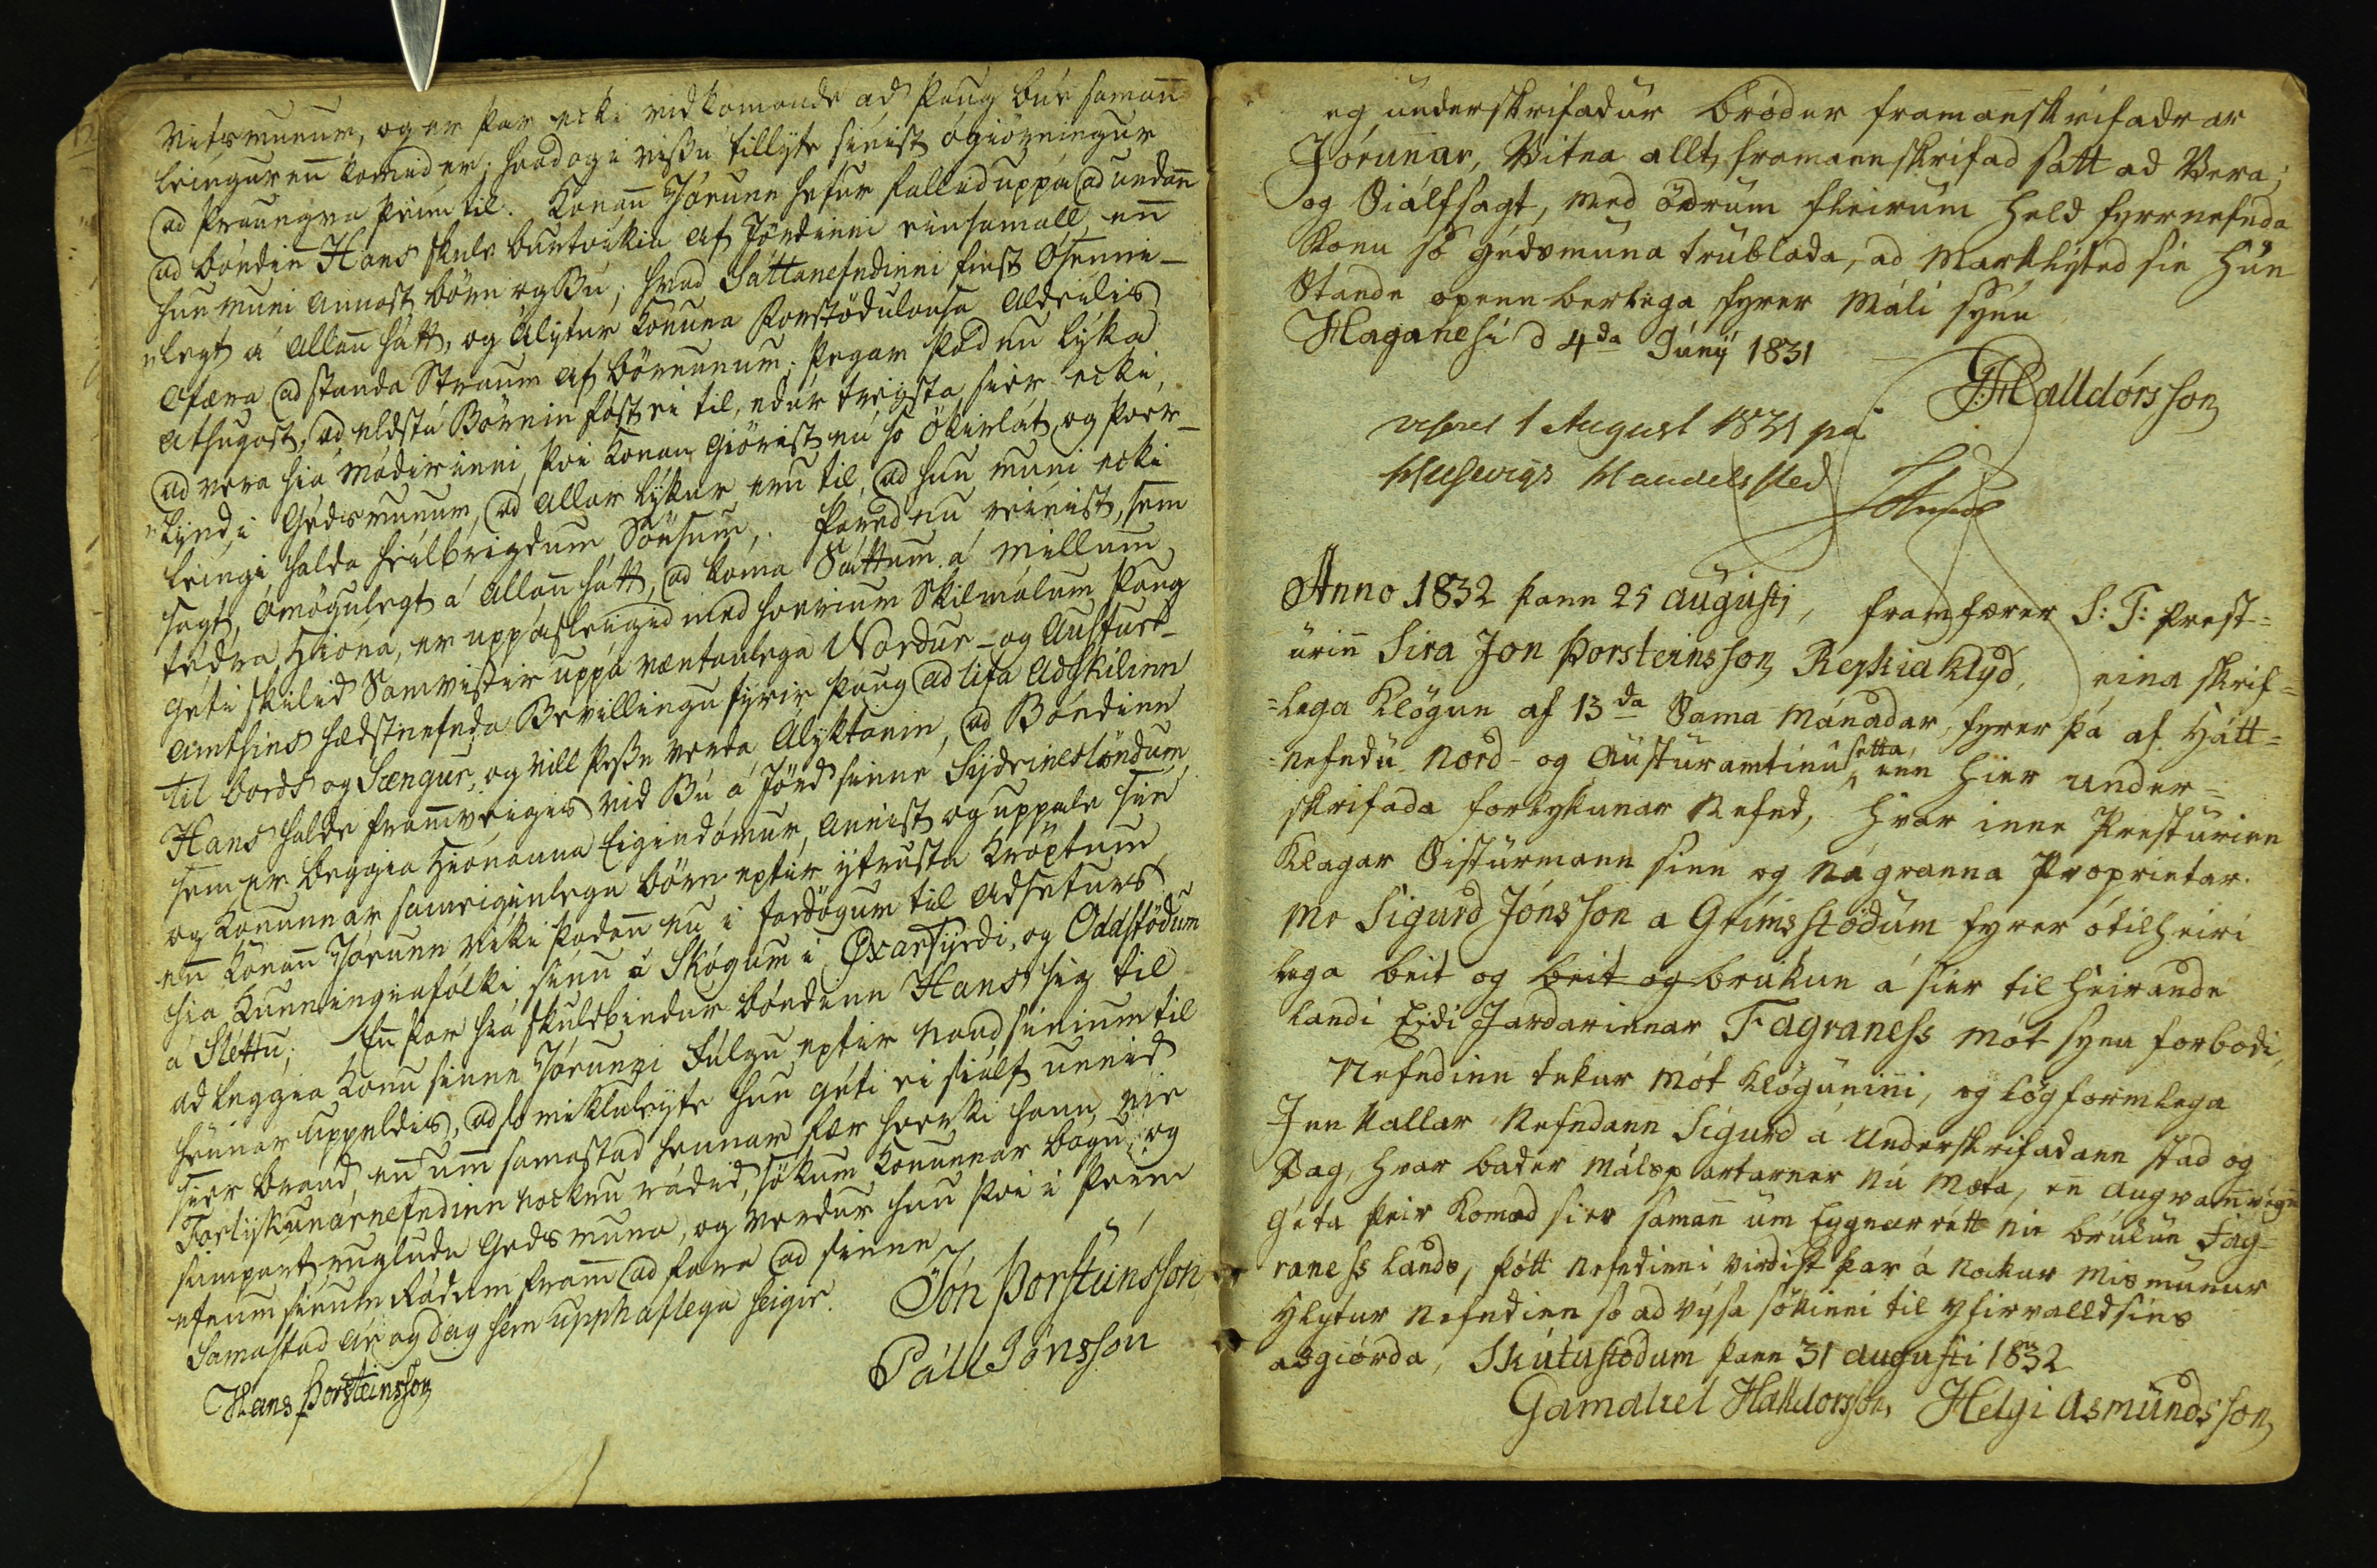 vitsmunum, og er þar ecki vidkomande ad þaug bue saman
leingur enn komid er; hvad og i vissu tillyte sinist ógiörningur
ad þraungva þeim til. Konan Jórunn hefur fallid uppá ad undann
ad bóndin Hans skule burtvikia af Jördinni einsamall, enn
hun muni annast börn og Bú; hvad Sáttanefndinni finst Osenni-
legt á allann hátt, og Alytur konuna forstödulausa Aldeilis
Ofæra ad standa Straum af börnunum; þegar þad nu lýka
athugast, ad eldstu Börnin fást ei til, edur treysta sier ecki,
ad vera hiá módirinni, því konan giörist nú so Ókirlát, og þver-
lýnd, i Gedsmunum, ad allar lýkur eru til, ad hun muni ecki
leingi halda heilbrigdum Sönsum. Þared nu reinist, sem
sagt, ómögulegt á allann hátt, ad koma Sáttum á millum
tédra Hióna, er uppáslengid med hverium Skilmálum þaug
géti skilid Samvistir uppá væntanlega Nordur- og Austur-
amtsins hædstnefnda Bevillingu fyrir þaug ad lifa Adskilinn
til bords og Sængur, og vill þessu verda Alyktanin, ad Bóndinn
Hans halde framveigis vid Bú á Jörd sinne Sydrineslöndum
sem er beggia Hiónanna Eigindómur, annist og uppale sin
og konunnar sameiginlegu börn eptir ýtrustu kröptum
enn konan Jórunn viki þadan nu i fardögum til adseturs
hia kunningiafólki sinu á Skógum i Öxarfyrdi, og Oddstödum
á Sléttu; En þar hiá skuldbindur bóndinn Hans sig til
ad leggia konu sinne Jórunni Fúlgu eptir naudsinium til
hennar uppeldis, ad so miklu leyte hun géti ei siálf unnid
sier braud, enn um samastad hennar fær hvorki hann nie
Forlyskunarnefndinn nockru rádid, sökum konunnar bágu, og
sumpart rugludu Gedsmuna, og verdur hun þvi i þeim
efnum sinum Rádum fram ad fara ad sinne
Samastad ár og dag sem upphaflega seigir. Jón Þorsteinsson
Hans Þorsteinsson Páll Jónsson
eg underskrifadur bródur framanskrifadrar
Jórunar, Vitna allt framannskrifad satt ad Vera;
og Siálfsagt, med ödrum fleirum held fyrrnefnda
konu so gédsmuna trublada, ad Marklysed sie hún
Stande openberlega fyrer Máli synu
Haganesi d 4da Júny 1831
J. Halldórsson
viseret 1 August 1831 pa
Husevigs Handelssted
Anno 1832 þann 25 augusti, framfærer S: T: Prest=
urinn Sira Jon Þorsteinsson Reykiahlýd, eina skrif=
=lega Klögun af 13da Sama Mánadar, fyrer þá af Hátt=
=nefndu Nord- og Austuramtinu setta, enn hier under=
skrifada forlykunar Nefnd, hvar inne Presturinn
Klagar Sistürmann sinn og Nágranna Proprietar.
Mr Sigurd Jónsson a Grímsstödum fyrer ótilheiri
lega beit og beit og brukun á sier til heirande
landi Eidi Jardarinnar Fagraness mót synu forbodi,
Nefndinn tekur mót Klöguninni, og lögformlega
Inn kallar Nefndann Sigurd á Underskrifadann stad og
Dag, hvar bader málspartarner Nú Mæta, en aungvannvegin
géta þeir komad sier samann um Eygnarrétt nie brukun Fag-
raness lands, þótt Nefndinni virdist þar á Nockur Mismunur
hlytur Nefndinn so ad vysa sökinni til yfirvalldsins
adgiórda, Skútustödum þann 31 augusti 1832
Gamaliel Halldorsson, Helgi Asmundsson